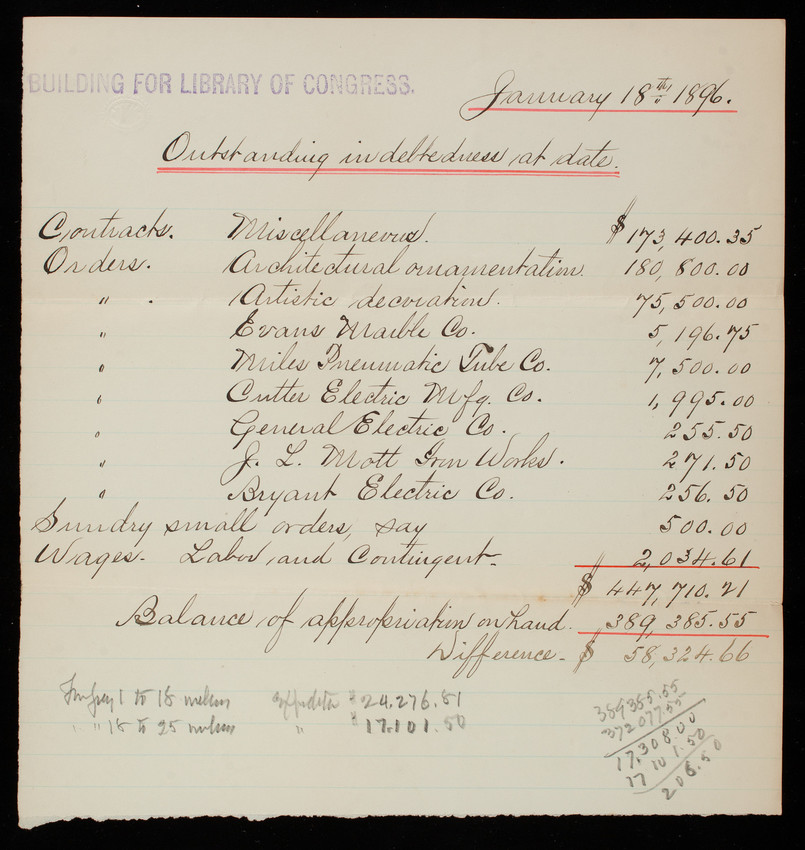 BUILDING FOR LIBRARY OF CONGRESS.
January 18th 1896.
Outstanding indebtedness at date.
Contracts. Miscellaneous. $173,400.35
Orders. Architectural ornamentation. 180,800.00
" . Artistic decoration. 75,500.00
" Evans Marble Co. 5,196.75
" Miles Pneumatic Tube Co. 7,500.00
" Cutter Electric Mfg. Co. 1,995.00
" General Electric Co. 255.50
" J. L. Mott Iron Works. 271.50
" Bryant Electric Co. 256.50
Sundry small orders, say 500.00
Wages. Labor and Contingent. 2,034.61
$ 447,710.21
Balance of appropriation on hand. 389,385.55
Difference. $ 58,324.66
1 to 18 $24,276.81
" " 18 to 25 " " 17,101.50
389385.55
372077.55
17,308.00
17 101.50
206.50